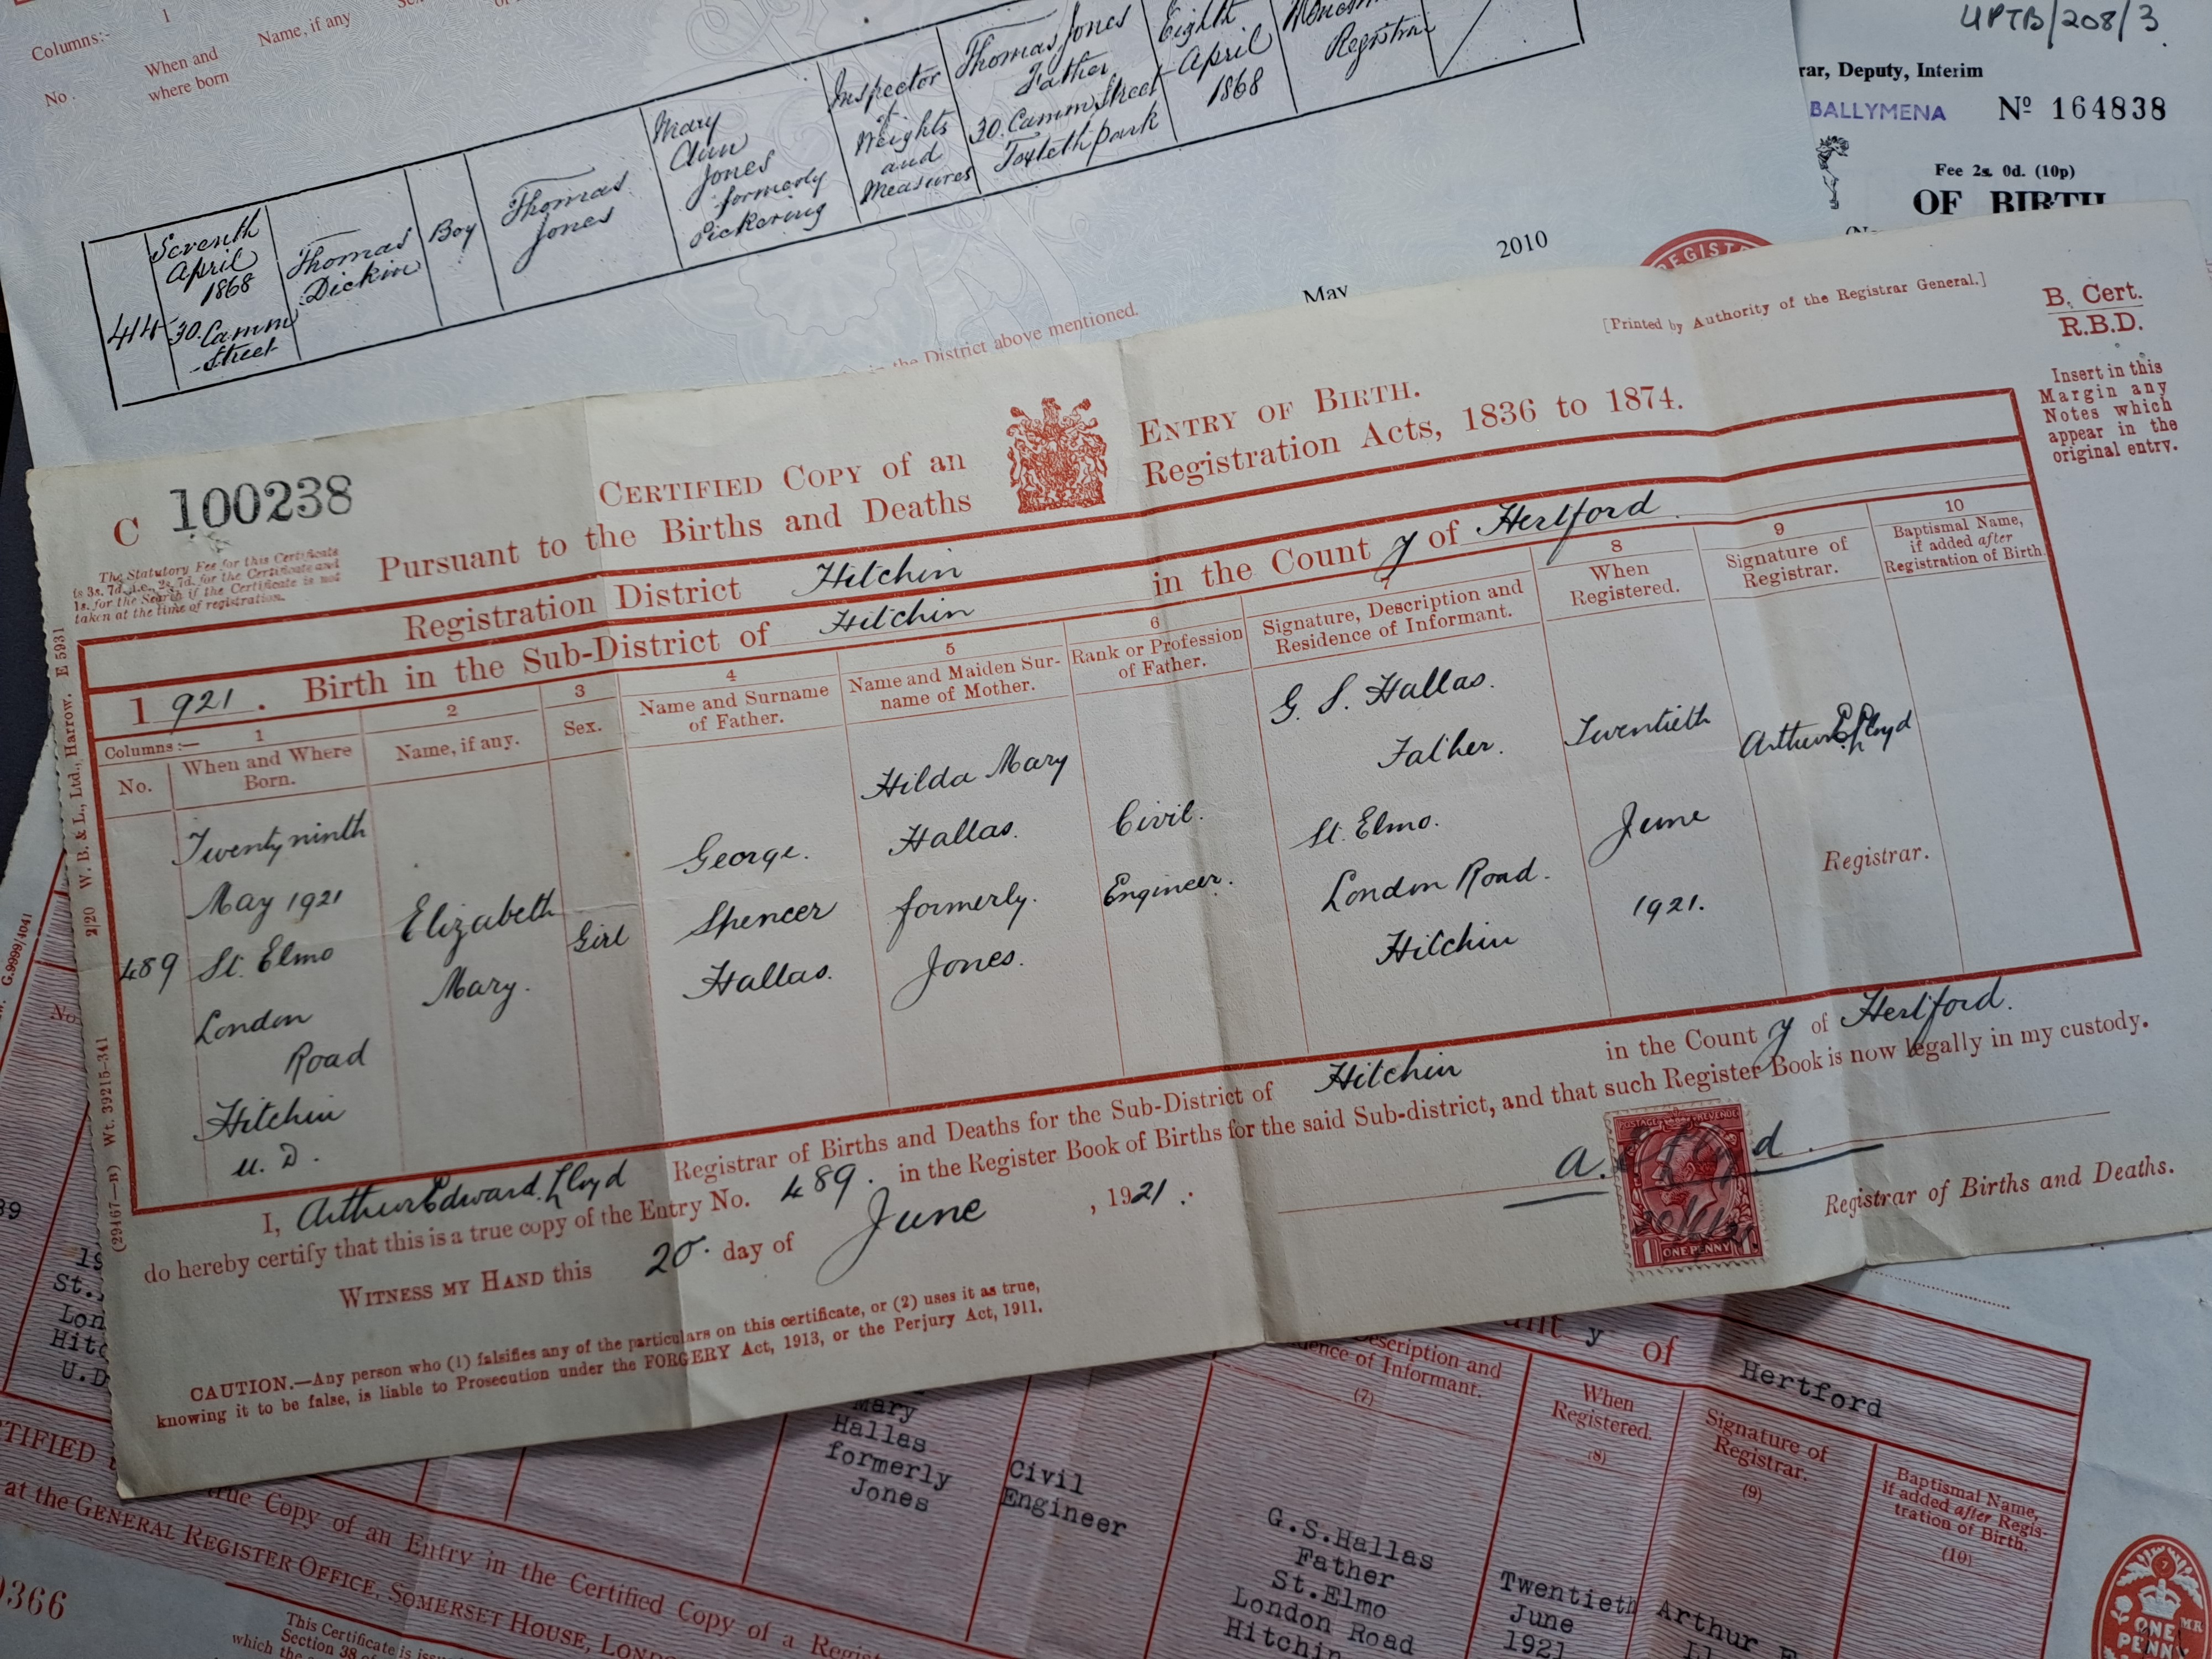 Columns:-
1
No.
When and
where born
Name, if any
44
Seventh
April
1868
30. Camm
Street
Thomas
Dickin
Boy
Thomas
Jones
Mary
Ann
Jones
formerly
Pickering
Inspector
of
Weights
and
Measures
Thomas Jones
Father
30. Camm Street
Toxteth park
Eighth
April
1868
Registrar
2010
May
the District above mentioned.
UPTB/208/3.
rar, Deputy, Interim
BALLYMENA
Nº 164838
Fee 2s. 0d. (10p)
OF BIRTH
REGIST
[Printed by Authority of the Registrar General.]
B. Cert.
R.B.D.
Insert in this
Margin any
Notes which
appear in the
original entry.
C 100238
The Statutory Fee for this Certificate
is 3s. 7d. i.e., 2s. 7d. for the Certificate and
1s. for the Search if the Certificate is not
taken at the time of registration.
CERTIFIED COPY of an ENTRY OF BIRTH.
Pursuant to the Births and Deaths Registration Acts, 1836 to 1874.
Registration District Hitchin
1921. Birth in the Sub-District of Hitchin in the County of Hertford
Columns:— 1 2 3 4 5 6 8 9 10
No.
When and Where
Born.
Name, if any.
Sex.
Name and Surname
of Father.
Name and Maiden Sur-
name of Mother.
Rank or Profession
of Father.
Signature, Description and
Residence of Informant.
When
Registered.
Signature of
Registrar.
Baptismal Name,
if added after
Registration of Birth.
489
Twenty ninth
May 1921
St. Elmo
London
Road
Hitchin
U. D.
Elizabeth
Mary.
Girl
George.
Spencer
Hallas.
Hilda Mary
Hallas.
formerly.
Jones.
Civil.
Engineer.
G. S. Hallas.
Father.
St. Elmo.
London Road.
Hitchin
Twentieth
June
1921.
Arthur E Lloyd
Registrar.
I, Arthur Edward Lloyd Registrar of Births and Deaths for the Sub-District of Hitchin in the County of Hertford.
do hereby certify that this is a true copy of the Entry No. 489. in the Register Book of Births for the said Sub-district, and that such Register Book is now legally in my custody.
WITNESS MY HAND this 20. day of June, 1921.
A. E Lloyd.
20/6/21
POSTAGE REVENUE
1 ONE PENNY 1
Registrar of Births and Deaths.
CAUTION.—Any person who (1) falsifies any of the particulars on this certificate, or (2) uses it as true,
knowing it to be false, is liable to Prosecution under the FORGERY Act, 1913, or the Perjury Act, 1911.
(29467—B) Wt. 39215-341 2/20 W. B. & L., Ltd., Harrow. E 5931
G.9999/4041
No.
39
19
St.
Lon
Hitc
U.D
Mary
Hallas
formerly
Jones
Civil
Engineer
y of Hertford
Description and
dence of Informant.
(7)
When
Registered.
(8)
Signature of
Registrar.
(9)
Baptismal Name,
if added after Regis-
tration of Birth.
(10)
G.S.Hallas
Father
St.Elmo
London Road
Hitchin
Twentieth
June
1921
Arthur E
Ll
TIFIED
true Copy of an Entry in the Certified Copy of a Regist
at the GENERAL REGISTER OFFICE, SOMERSET HOUSE, LOND
0366
This Certificate is issu
Section 38 of
which the
ONE
PENNY